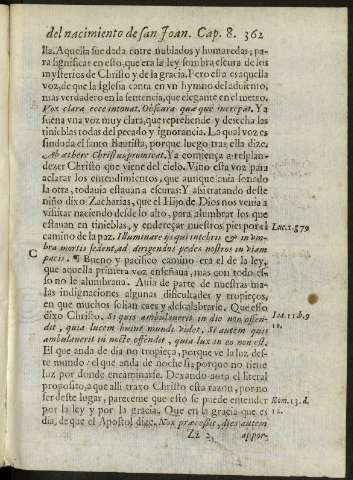 del nacimiento de san Joan. Cap. 8. 362
lla. Aquella fue dada entre nublados y humaredas; pa-
ra significar en esto, que era la ley sombra escura de los
mysterios de Christo y de la gracia. Pero esta es aquella
voz, de que la Iglesia canta en vn hymno del aduiento,
mas verdadero en la sentencia, que elegante en el metro.
Vox clara ecce intonat. Obscura quæque increpat. Ya
suena vna voz muy clara, que reprehende y desecha las
tinieblas todas del pecado y ignorancia. La qual voz es
sin duda el santo Bautista, porque luego tras ella dize.
Ab æthere Christus promicat. Ya comiença a resplan-
dezer Christo que viene del cielo. Vino esta voz para
aclarar los entendimientos, que aunque auia sonado
la otra, todauia estauan a escuras: Y assi tratando deste
niño dixo Zacharias, que el Hijo de Dios nos venia a
visitar naciendo desde lo alto, para alumbrar los que
estauan en tinieblas, y endereçar nuestros pies por el
camino de la paz. Illuminare ijs qui in tenebris & in vm-
bra mortis sedent, ad dirigendos pedes nostros in viam
pacis. ¶ Bueno y pacifico camino era el de la ley,
que aquella primera voz enseñaua, mas con todo es-
so no le alumbrana. Auia de parte de nuestras ma-
las indignaciones algunas dificultades y tropieços,
en que muchos solian caer y descalabrarse. Que esso
dixo Christo. Si quis ambulauerit in die non offen-
dit, quia lucem huius mundi videt. Si autem quis
ambulauerit in nocte offendit, quia lux in eo non est.
El que anda de dia no tropieça, porque ve la luz des-
te mundo: el que anda de noche si; porque no tiene
luz por donde encaminarse. Dexando aora el literal
proposito, a que alli traxo Christo esta razon, por no
ser deste lugar, pareceme que esto se puede entender
por la ley y por la gracia. Que en la gracia que es
dia, de que el Apostol dize, Nox præcessit, dies autem
Zz 2 appor-
Luc. 1. g 79
C
Ioa. 11. b. 9
10.
Rom. 13. d.
12.